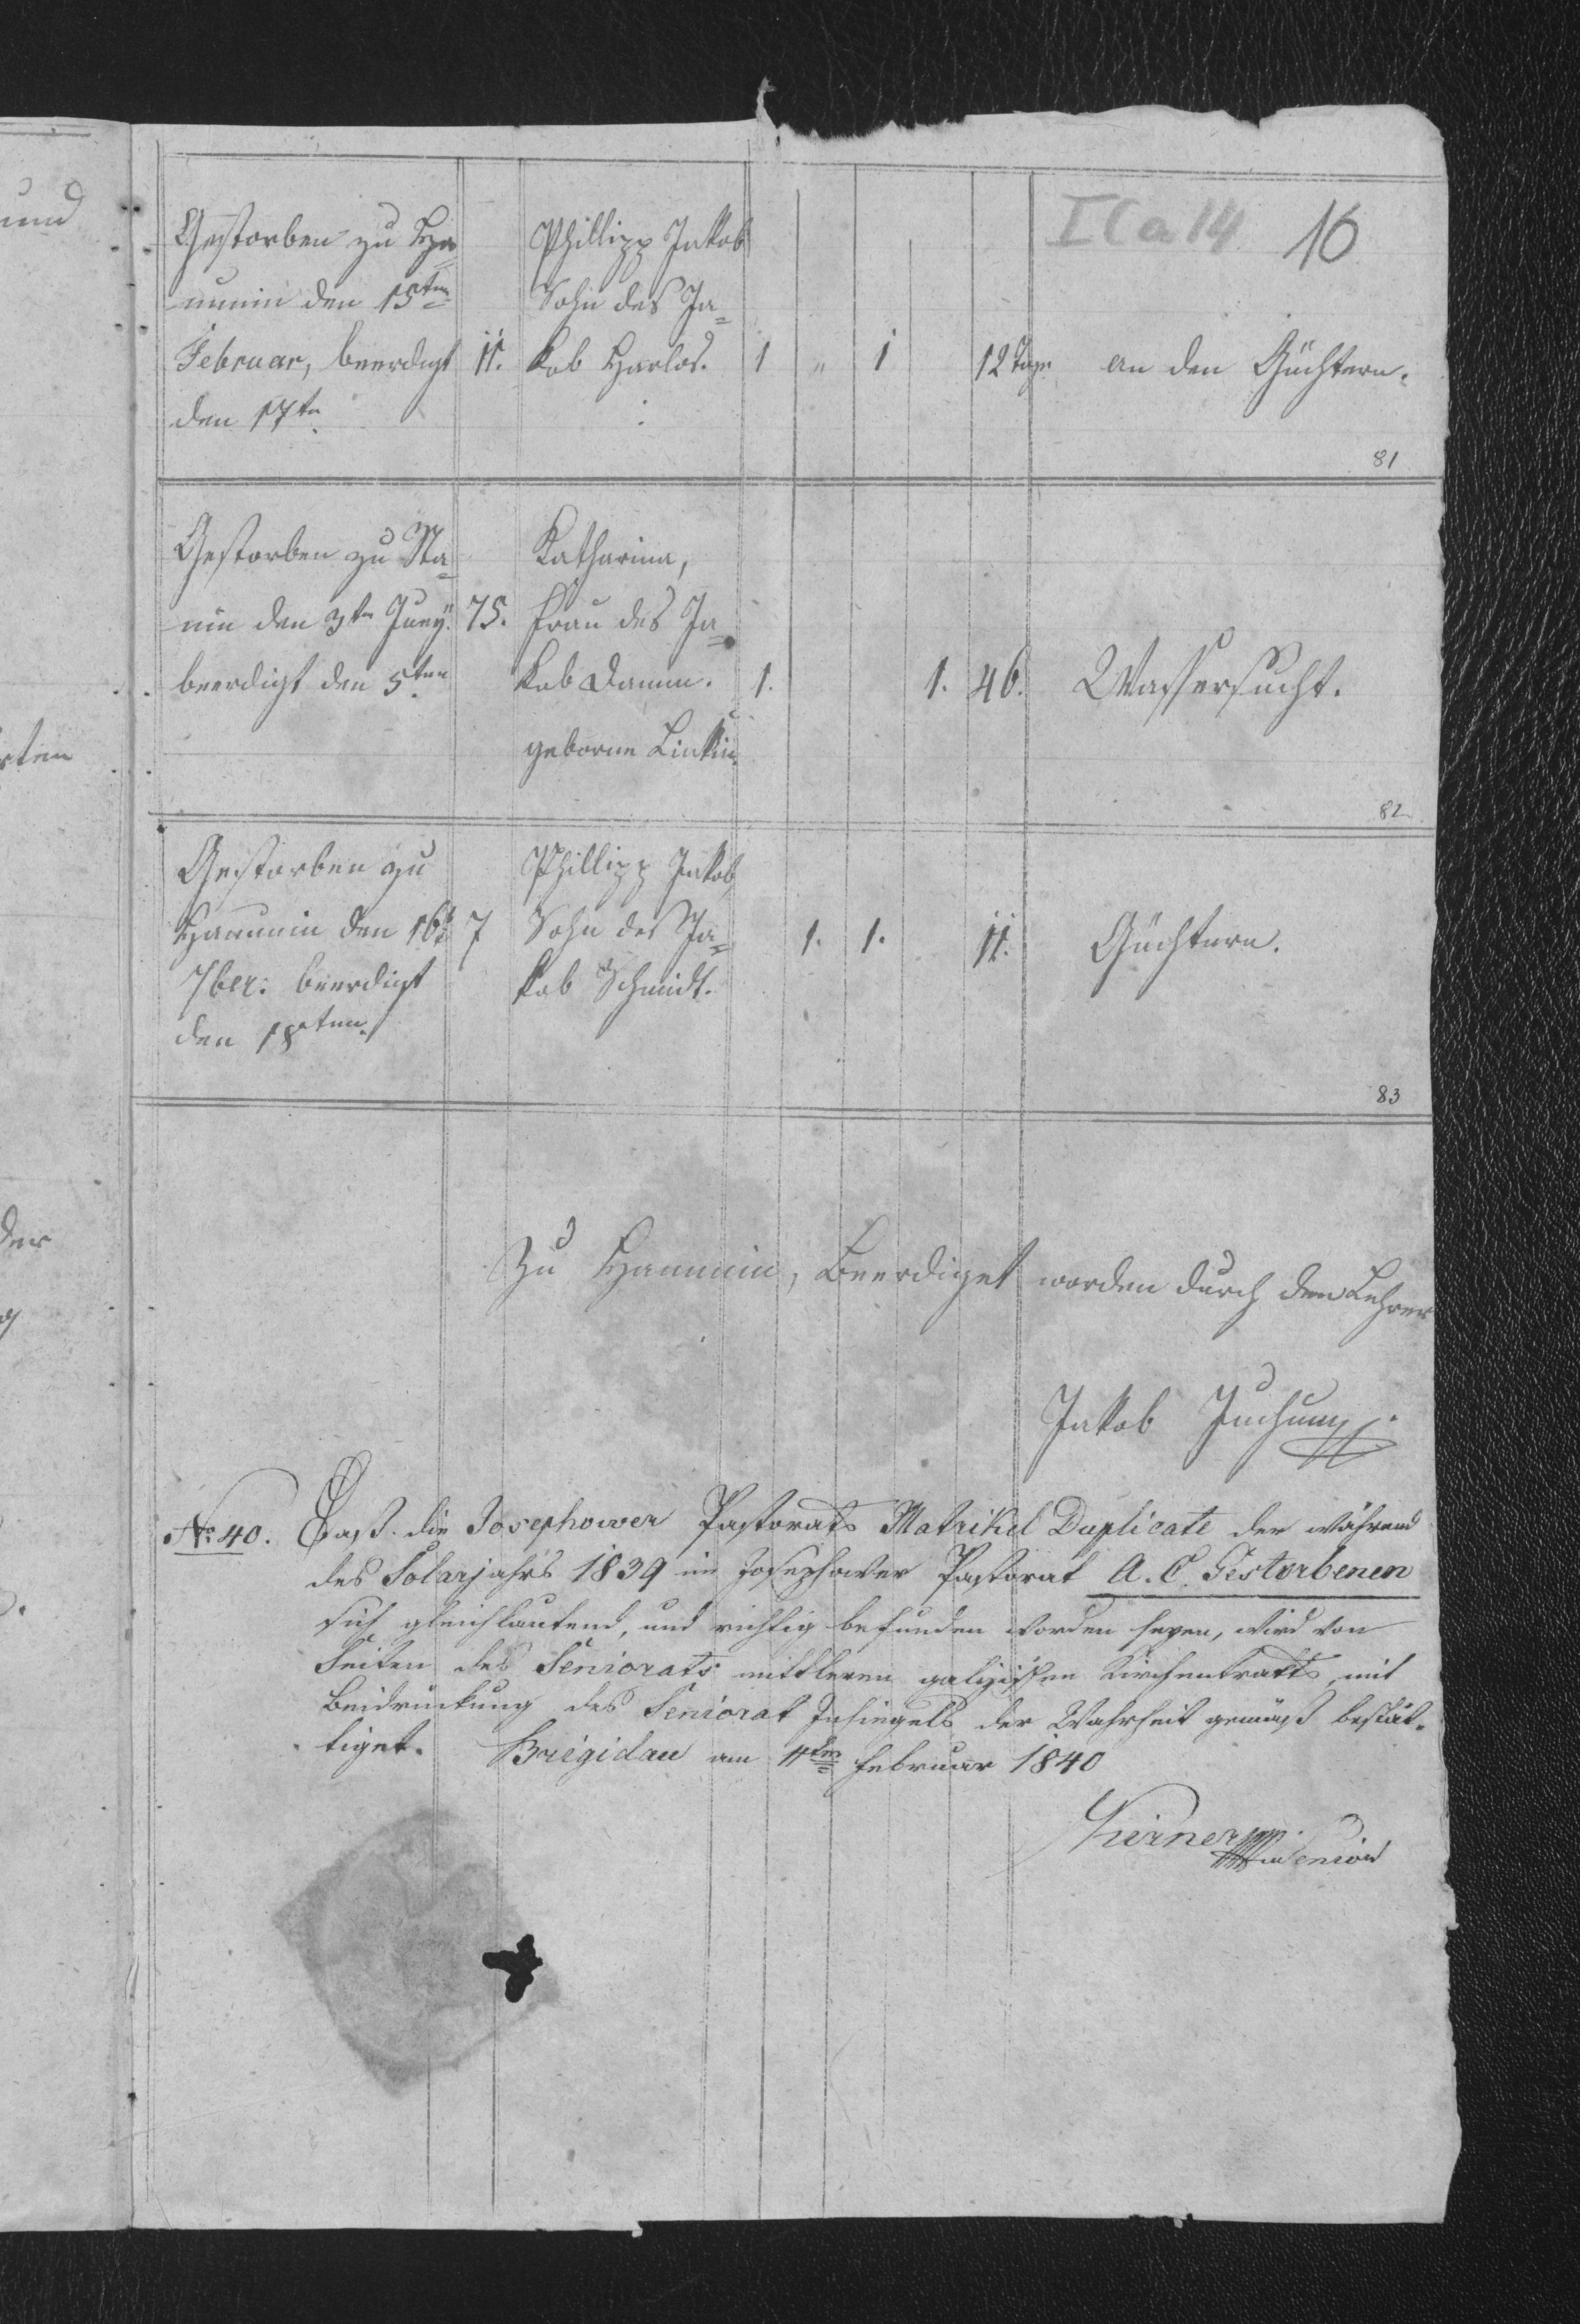 und
I C a 14 16
Gestorben zu Ha
nunin den 15ten
Februar, beerdigt
den 17ten
11.
Phillipp Jakob
Sohn des Ja=
kob Harlos.
1 " 1 12 Tage
an den Güchtern.
81
Gestorben zu Sta=
nin den 3ten Juny.
beerdigt den 5ten
75.
Katharina,
Frau des Ja=
kob Damm.
geborne Linkin
1. 1. 46.
Wassersucht.
82
rten
Gestorben zu
Hanunin den 16t
7ber: beerdigt
den 18ten.
7
Phillipp Jakob
Sohn des Ja=
kob Schmidt.
1. 1. 11.
Güchtern.
83
der
Zu Hanunin, Beerdiget worden durch den Lehrer
Jakob Juchum
No 40. Daß die Josephower Pastorats Matrikel Duplicate der während
des Solarjahrs 1839 im Josephower Pastorat A. C. Gestorbenen
sich gleichlautend, und richtig befunden worden seyen, wird von
Seiten des Seniorats mittleren galizischen Kirchentrakts, mit
Beidruckung des Seniorat Insiegels der Wahrheit gemäß bestät=
tiget. Brigidau am 4ten Februar 1840
Senior